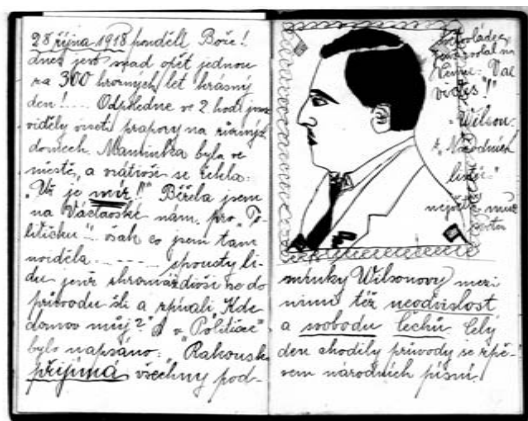 28 října 1918 pondělí. Bože!
dnes jest snad opět jednou
za 300 hrozných let krásný
den!... Odpoledne ve 2 hod. jsme
viděly viseti prapory na různých
domech. Maminka byla ve
městě, a vrátivši se řekla:
"Už je mír!!" Běžela jsem
na Václavské nám. pro "Po-
litičku"... však co jsem tam
neviděla ...... spousty li-
du jenž shromáždivši se do
průvodu šli a zpívali "Kde
domov můj?" A v "Politice"
bylo napsáno: "Rakousko
přijímá všechny pod-
na
"Vae
"Wilson.
z "Národních
listů"
mínky Wilsonovy mezi
nimi též neodvislost
a svobodu Čechů. Celý
den chodily průvody se zpě-
vem národních písní.